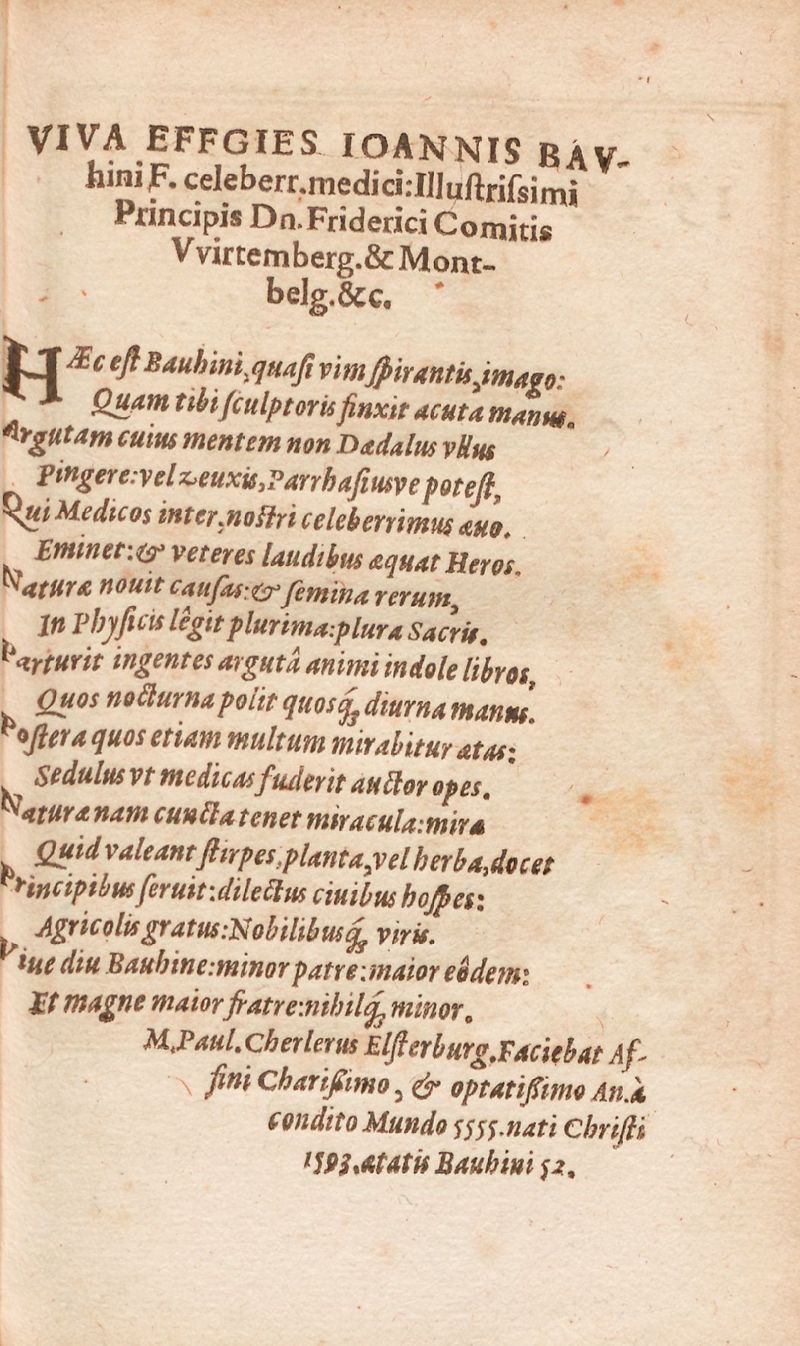 VIVA EFFGIES IOANNIS BAV-
hini F. celeberr.medici:Illuſtriſsimi
Principis Dn.Friderici Comitis
Vvirtemberg.& Mont-
belg.&c.
HÆc eſt Bauhini,quaſi vim ſpirantis,imago:
Quam tibi ſculptoris finxit acuta manus.
Argutam cuius mentem non Dædalus vllus
Pingere:vel zeuxis,Parrhaſiusve poteſt,
Qui Medicos inter,noſtri celeberrimus æuo.
Eminet:& veteres laudibus æquat Heros.
Naturæ nouit cauſas:& ſemina rerum,
In Phyſicis lêgit plurima:plura Sacris.
Parturit ingentes argutâ animi indole libros,
Quos nocturna polit quosq́; diurna manus.
Poſtera quos etiam multum mirabitur ætas:
Sedulus vt medicas fuderit auctor opes.
Naturæ nam cuncta tenet miracula:mira
Quid valeant ſtirpes,planta,vel herba,docet
Principibus ſeruit:dilectus ciuibus hoſpes:
Agricolis gratus:Nobilibusq́; viris.
Viue diu Bauhine:minor patre:maior eôdem:
Et magne maior fratre:nihilq́; minor.
M.Paul.Cherlerus Elſterburg.Faciebat Af-
fini Chariſſimo, & optatiſſimo An.à
condito Mundo 5555.nati Chriſti
1593.ætatis Bauhini 52.